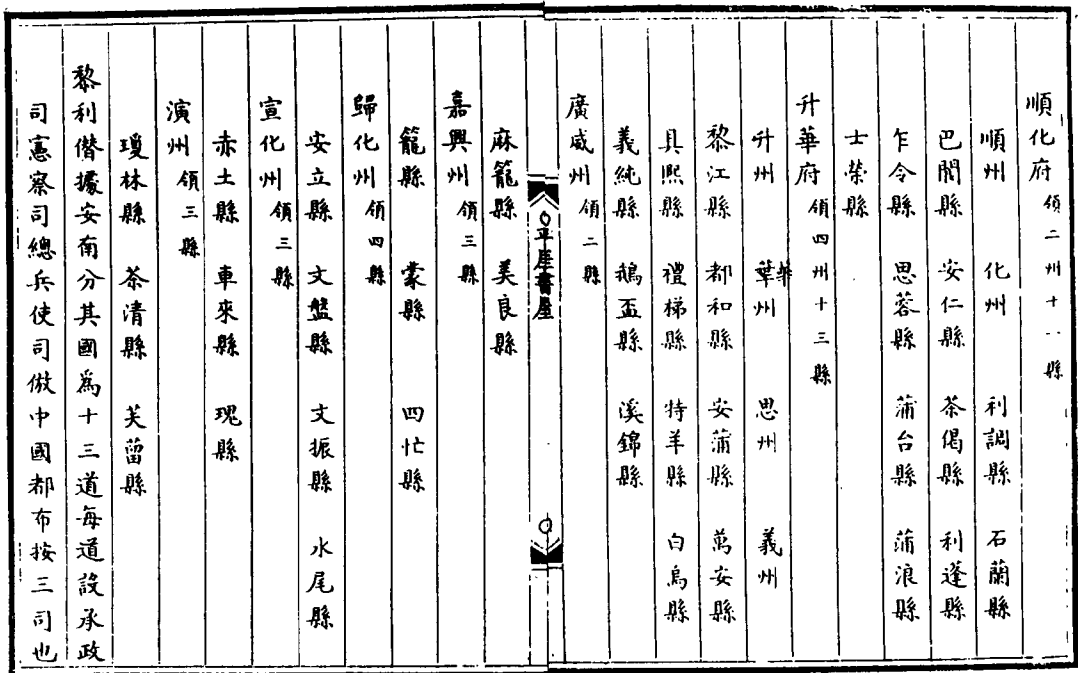 順化府 領二州十一縣
順州 化州 利調縣 石蘭縣
巴閬縣 安仁縣 茶偈縣 利蓬縣
乍令縣 思蓉縣 蒲台縣 蒲浪縣
士榮縣
升華府 領四州十三縣
升州 華州 思州 義州
黎江縣 都和縣 安蒲縣 萬安縣
具熈縣 禮梯縣 特羊縣 白烏縣
義純縣 鵝盃縣 溪錦縣
廣威州 領二縣
麻籠縣 美良縣
嘉興州 領三縣
籠縣 蒙縣 四忙縣
歸化州 領四縣
安立縣 文盤縣 文振縣 水尾縣
宣化州 領三縣
赤土縣 車來縣 瑰縣
演州 領三縣
瓊林縣 茶清縣 芙蒥縣
黎利僭據安南分其國爲十三道每道設承政
司憲察司總兵使司倣中國都布按三司也